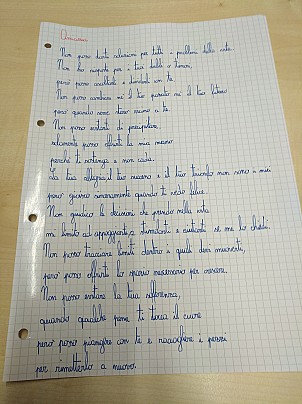 Amicizia
Non posso darti soluzioni per tutti i problemi della vita
Non ho risposte per i tuoi dubbi o timori,
però posso ascoltarli e dividerli con te
Non posso cambiare né il tuo passato né il tuo futuro
però quando serve starò vicino a te
Non posso evitarti di precipitare,
solamente posso offrirti la mia mano
perché ti sostenga e non cada.
La tua allegria il tuo successo e il tuo trionfo non sono i miei
però gioisco sinceramente quando ti vedo felice.
Non giudico le decisioni che prendi nella vita
mi limito ad appoggiarti a stimolarti e aiutarti se me lo chiedi.
Non posso tracciare limiti dentro i quali devi muoverti,
però posso offrirti lo spazio necessario per crescere.
Non posso evitare la tua sofferenza,
quando qualche pena ti tocca il cuore
però posso piangere con te e raccogliere i pezzi
per rimetterlo a nuovo.